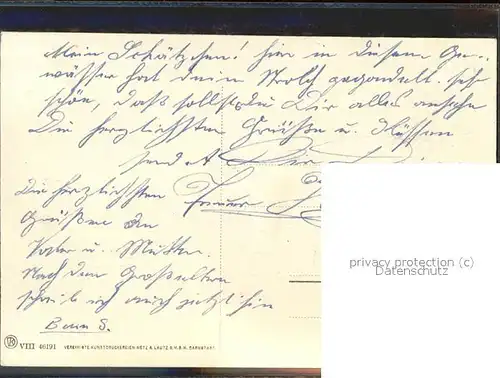 Mein Schätzchen! hier in diesem Ge-
wässer hat dein Strolch gegondelt. sehr
schön, daß solltest du Dir alles ansehen
Die herzlichsten Grüße u. Küssen
sendet Dir
Die herzlichsten
Grüße an
Vater u. Mutter.
Nach den Großeltern
schreib ich auch jetzt hin
privacy protection (c)
Datenschutz
VIII 46191 VEREINIGTE KUNSTDRUCKEREIEN METZ & LAUTZ G.M.B.H. DARMSTADT